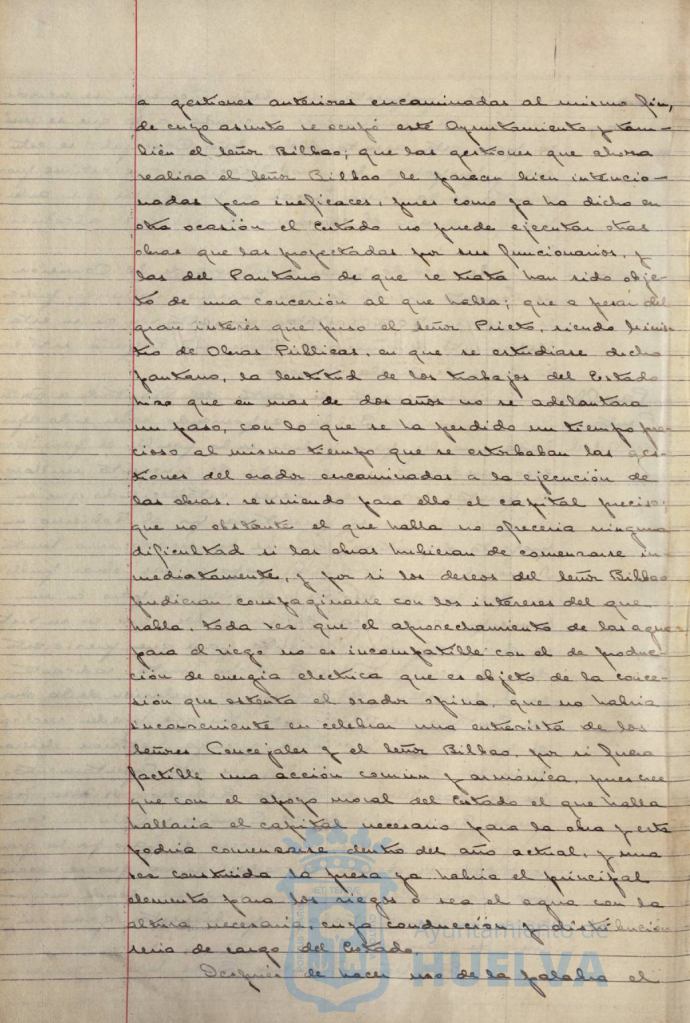 a gestiones anteriores encaminadas al mismo fin,
de cuyo asunto se ocupó este Ayuntamiento y tam-
bién el Señor Bilbao; que las gestiones que ahora
realiza el Señor Bilbao le parecen bien intencio-
nadas pero ineficaces, pues como ya ha dicho en
otra ocasión el Estado no puede ejecutar otras
obras que las proyectadas por sus funcionarios, y
las del Pantano de que se trata han sido obje-
to de una concesión al que habla; que a pesar del
gran interés que puso el Señor Prieto, siendo Minis
tro de Obras Públicas, en que se estudiase dicho
pantano, la lentitud de los trabajos del Estado
hizo que en mas de dos años no se adelantara
un paso, con lo que se ha perdido un tiempo pre-
cioso al mismo tiempo que se estorbaban las ges-
tiones del orador encaminadas a la ejecución de
las obras, reuniendo para ello el capital preciso;
que no obstante el que habla no ofrecería ninguna
dificultad si las obras hubieran de comenzarse in-
mediatamente, y por si los deseos del Señor Bilbao
pudieran compaginarse con los intereses del que
habla, toda vez que el aprovechamiento de las aguas
para el riego no es incompatible con el de produc-
ción de energía electrica que es objeto de la conce-
sión que ostenta el orador opina, que no habría
inconveniente en celebrar una entrevista de los
Señores Concejales y el Señor Bilbao, por si fuera
factible una acción común y armónica, pues cree
que con el apoyo moral del Estado el que habla
hallaría el capital necesario para la obra y esta
podría comenzarse dentro del año actual, y una
vez construida la presa ya habría el principal
elemento para los riegos o sea el agua con la
altura necesaria, cuya conducción y distribución
seria de cargo del Estado.
Después de hacer uso de la palabra el
Ayuntamiento de
HUELVA